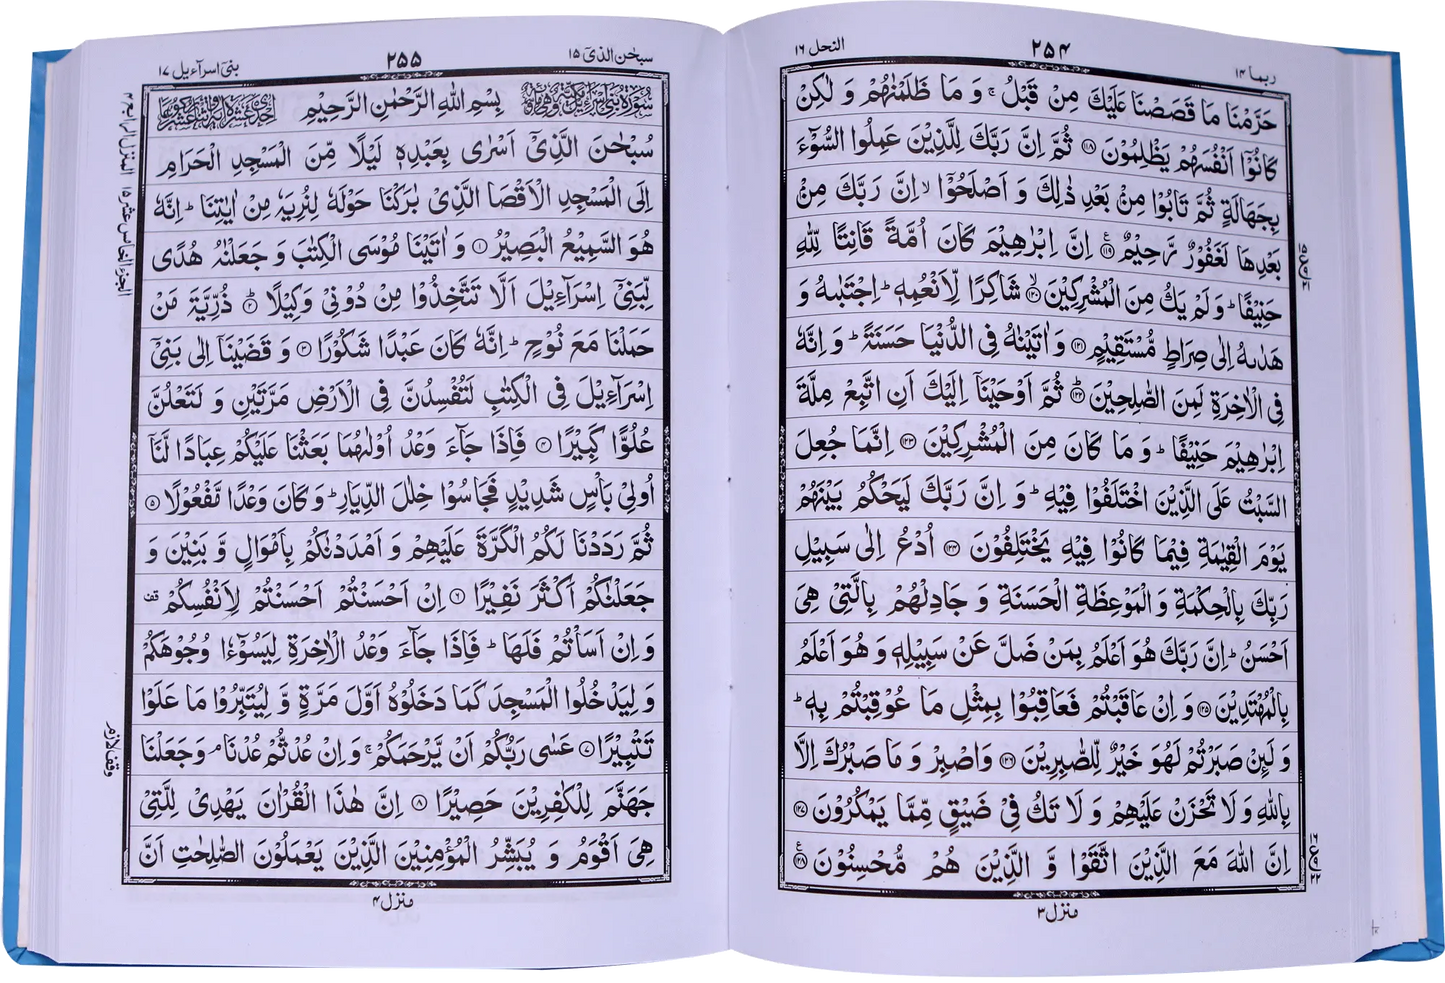 ربما ۱۴
۲۵۴
النحل ۱۶
حَرَّمْنَا مَا قَصَصْنَا عَلَيْكَ مِنْ قَبْلُ ۚ وَ مَا ظَلَمْنٰهُمْ وَ لٰكِنْ
كَانُوْۤا اَنْفُسَهُمْ يَظْلِمُوْنَ ﴿۱۱۸﴾ ثُمَّ اِنَّ رَبَّكَ لِلَّذِيْنَ عَمِلُوا السُّوْٓءَ
بِجَهَالَةٍ ثُمَّ تَابُوْا مِنْۢ بَعْدِ ذٰلِكَ وَ اَصْلَحُوْۤا ۙ اِنَّ رَبَّكَ مِنْۢ
بَعْدِهَا لَغَفُوْرٌ رَّحِيْمٌ ﴿۱۱۹﴾ اِنَّ اِبْرٰهِيْمَ كَانَ اُمَّةً قَانِتًا لِّلّٰهِ
حَنِيْفًا ؕ وَ لَمْ يَكُ مِنَ الْمُشْرِكِيْنَ ﴿۱۲۰﴾ شَاكِرًا لِّاَنْعُمِهٖ ؕ اِجْتَبٰىهُ وَ
هَدٰىهُ اِلٰى صِرَاطٍ مُّسْتَقِيْمٍ ﴿۱۲۱﴾ وَ اٰتَيْنٰهُ فِى الدُّنْيَا حَسَنَةً ؕ وَ اِنَّهٗ
فِى الْاٰخِرَةِ لَمِنَ الصّٰلِحِيْنَ ﴿۱۲۲﴾ ثُمَّ اَوْحَيْنَاۤ اِلَيْكَ اَنِ اتَّبِعْ مِلَّةَ
اِبْرٰهِيْمَ حَنِيْفًا ؕ وَ مَا كَانَ مِنَ الْمُشْرِكِيْنَ ﴿۱۲۳﴾ اِنَّمَا جُعِلَ
السَّبْتُ عَلَى الَّذِيْنَ اخْتَلَفُوْا فِيْهِ ؕ وَ اِنَّ رَبَّكَ لَيَحْكُمُ بَيْنَهُمْ
يَوْمَ الْقِيٰمَةِ فِيْمَا كَانُوْا فِيْهِ يَخْتَلِفُوْنَ ﴿۱۲۴﴾ اُدْعُ اِلٰى سَبِيْلِ
رَبِّكَ بِالْحِكْمَةِ وَ الْمَوْعِظَةِ الْحَسَنَةِ وَ جَادِلْهُمْ بِالَّتِىْ هِىَ
اَحْسَنُ ؕ اِنَّ رَبَّكَ هُوَ اَعْلَمُ بِمَنْ ضَلَّ عَنْ سَبِيْلِهٖ وَ هُوَ اَعْلَمُ
بِالْمُهْتَدِيْنَ ﴿۱۲۵﴾ وَ اِنْ عَاقَبْتُمْ فَعَاقِبُوْا بِمِثْلِ مَا عُوْقِبْتُمْ بِهٖ ؕ
وَ لَئِنْ صَبَرْتُمْ لَهُوَ خَيْرٌ لِّلصّٰبِرِيْنَ ﴿۱۲۶﴾ وَاصْبِرْ وَ مَا صَبْرُكَ اِلَّا
بِاللّٰهِ وَ لَا تَحْزَنْ عَلَيْهِمْ وَ لَا تَكُ فِىْ ضَيْقٍ مِّمَّا يَمْكُرُوْنَ ﴿۱۲۷﴾
اِنَّ اللّٰهَ مَعَ الَّذِيْنَ اتَّقَوْا وَّ الَّذِيْنَ هُمْ مُّحْسِنُوْنَ ﴿۱۲۸﴾
منزل ۳
سبحٰن الذىۤ ۱۵
۲۵۵
بنىۤ اسرآءيل ۱۷
بِسْمِ اللّٰهِ الرَّحْمٰنِ الرَّحِيْمِ
سُبْحٰنَ الَّذِىْۤ اَسْرٰى بِعَبْدِهٖ لَيْلًا مِّنَ الْمَسْجِدِ الْحَرَامِ
اِلَى الْمَسْجِدِ الْاَقْصَا الَّذِىْ بٰرَكْنَا حَوْلَهٗ لِنُرِيَهٗ مِنْ اٰيٰتِنَا ؕ اِنَّهٗ
هُوَ السَّمِيْعُ الْبَصِيْرُ ﴿۱﴾ وَ اٰتَيْنَا مُوْسَى الْكِتٰبَ وَ جَعَلْنٰهُ هُدًى
لِّبَنِىْۤ اِسْرَآءِيْلَ اَلَّا تَتَّخِذُوْا مِنْ دُوْنِىْ وَكِيْلًا ﴿۲﴾ ذُرِّيَّةَ مَنْ
حَمَلْنَا مَعَ نُوْحٍ ؕ اِنَّهٗ كَانَ عَبْدًا شَكُوْرًا ﴿۳﴾ وَ قَضَيْنَاۤ اِلٰى بَنِىْۤ
اِسْرَآءِيْلَ فِى الْكِتٰبِ لَتُفْسِدُنَّ فِى الْاَرْضِ مَرَّتَيْنِ وَ لَتَعْلُنَّ
عُلُوًّا كَبِيْرًا ﴿۴﴾ فَاِذَا جَآءَ وَعْدُ اُوْلٰىهُمَا بَعَثْنَا عَلَيْكُمْ عِبَادًا لَّنَاۤ
اُولِىْ بَاْسٍ شَدِيْدٍ فَجَاسُوْا خِلٰلَ الدِّيَارِ ؕ وَ كَانَ وَعْدًا مَّفْعُوْلًا ﴿۵﴾
ثُمَّ رَدَدْنَا لَكُمُ الْكَرَّةَ عَلَيْهِمْ وَ اَمْدَدْنٰكُمْ بِاَمْوَالٍ وَّ بَنِيْنَ وَ
جَعَلْنٰكُمْ اَكْثَرَ نَفِيْرًا ﴿۶﴾ اِنْ اَحْسَنْتُمْ اَحْسَنْتُمْ لِاَنْفُسِكُمْ قف
وَ اِنْ اَسَاْتُمْ فَلَهَا ؕ فَاِذَا جَآءَ وَعْدُ الْاٰخِرَةِ لِيَسُوْٓءٗا وُجُوْهَكُمْ
وَ لِيَدْخُلُوا الْمَسْجِدَ كَمَا دَخَلُوْهُ اَوَّلَ مَرَّةٍ وَّ لِيُتَبِّرُوْا مَا عَلَوْا
تَتْبِيْرًا ﴿۷﴾ عَسٰى رَبُّكُمْ اَنْ يَّرْحَمَكُمْ ۚ وَ اِنْ عُدْتُّمْ عُدْنَا ۘ وَ جَعَلْنَا
جَهَنَّمَ لِلْكٰفِرِيْنَ حَصِيْرًا ﴿۸﴾ اِنَّ هٰذَا الْقُرْاٰنَ يَهْدِىْ لِلَّتِىْ
هِىَ اَقْوَمُ وَ يُبَشِّرُ الْمُؤْمِنِيْنَ الَّذِيْنَ يَعْمَلُوْنَ الصّٰلِحٰتِ اَنَّ
منزل ۴
المنزل الرابع ۴
الجزء الخامس عشر ۱۵
وقف لازم